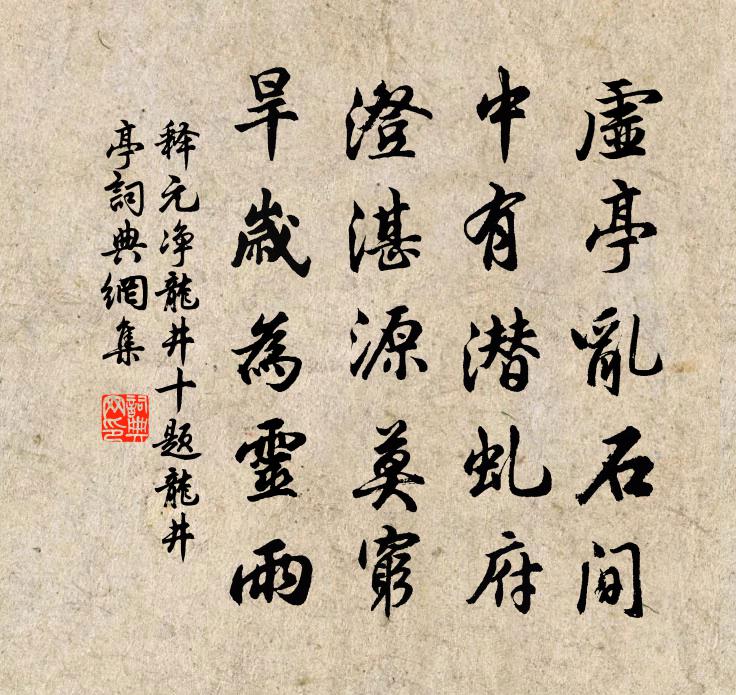 虛亭亂石間
中有潜虬府
澄湛源莫窮
旱歲為靈雨
释元净龍井十题龍井
亭詞典網集
詞典网印